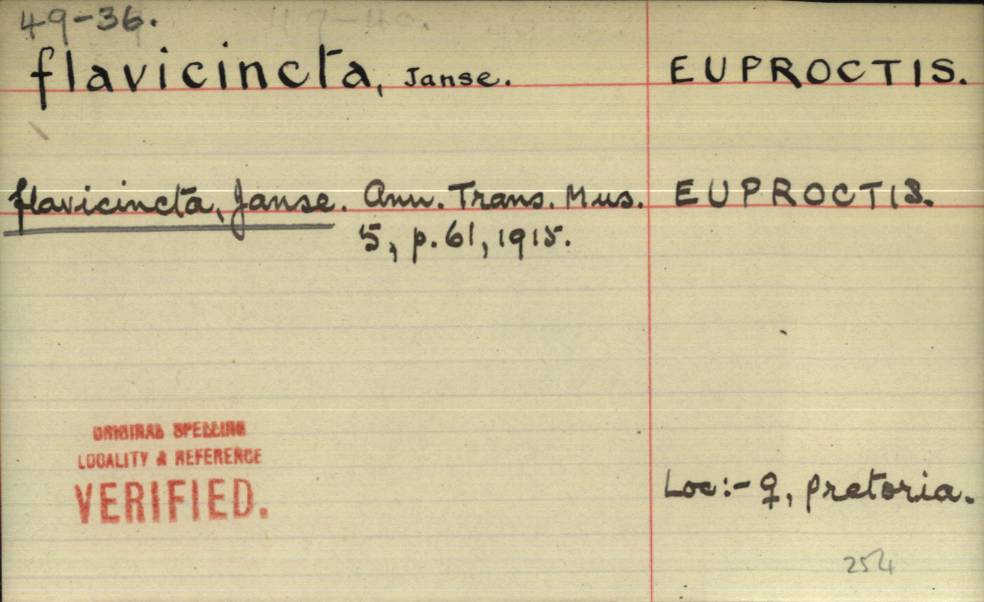 49-36.
flavicincta, Janse. EUPROCTIS.
flavicincta, Janse. Ann. Trans. Mus. EUPROCTIS.
5, p. 61, 1915.
ORIGINAL SPELLING
LOCALITY & REFERENCE
VERIFIED.
Loc:- ♀, Pretoria.
254